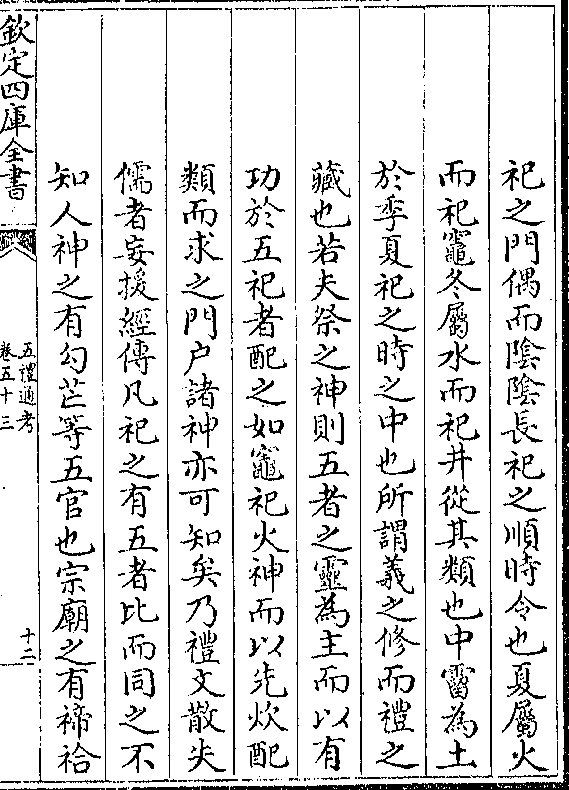 祀之門偶而陰陰長祀之順時令也夏屬火
而祀竈冬屬水而祀井從其類也中霤為土
於季夏祀之時之中也所謂義之修而禮之
藏也若夫祭之神則五者之靈為主而以有
功於五祀者配之如竈祀火神而以先炊配
類而求之門户諸神亦可知矣乃禮文散失
儒者妄援經傳凡祀之有五者比而同之不
知人神之有勾芒等五官也宗廟之有禘祫
欽定四庫全書
五禮通考
卷五十三
十二